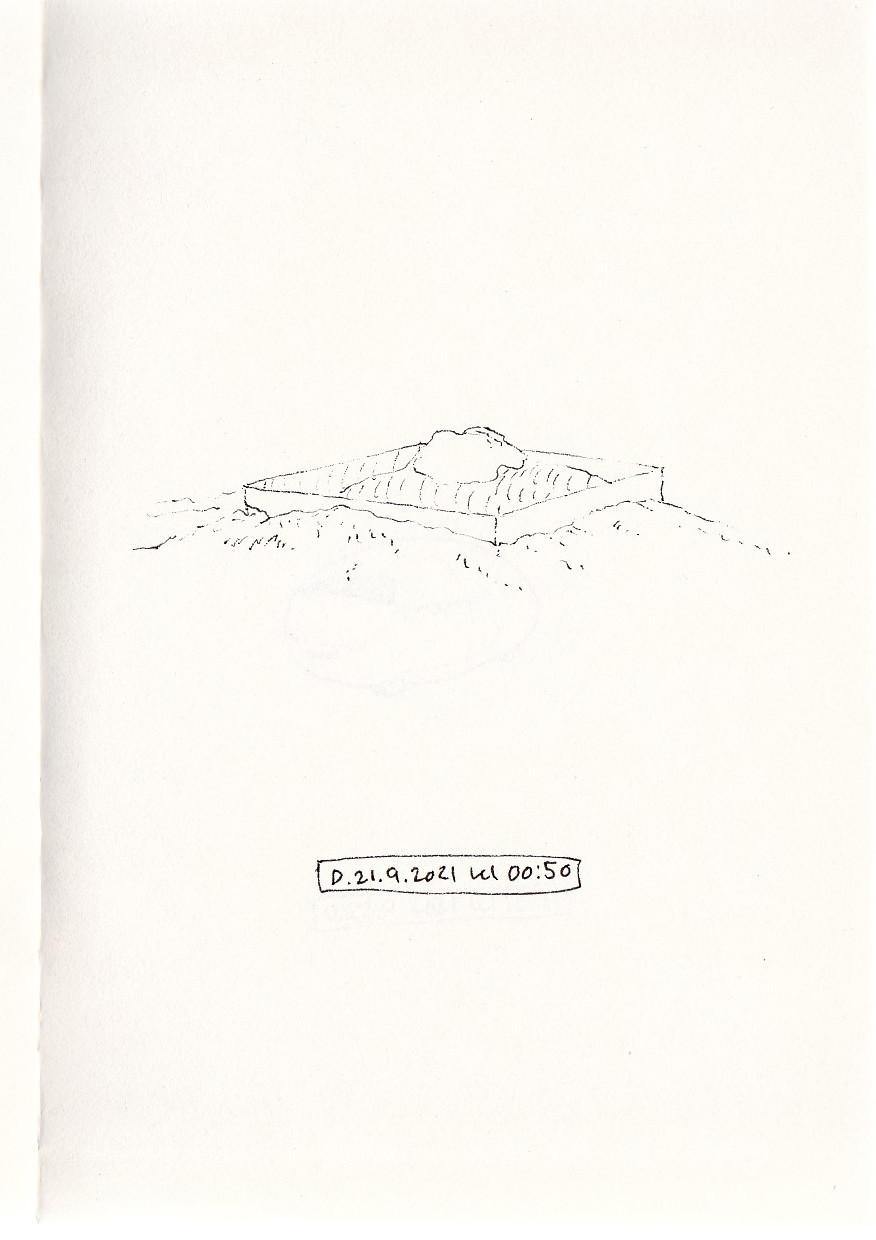 D.21.9.2021 kl 00:50